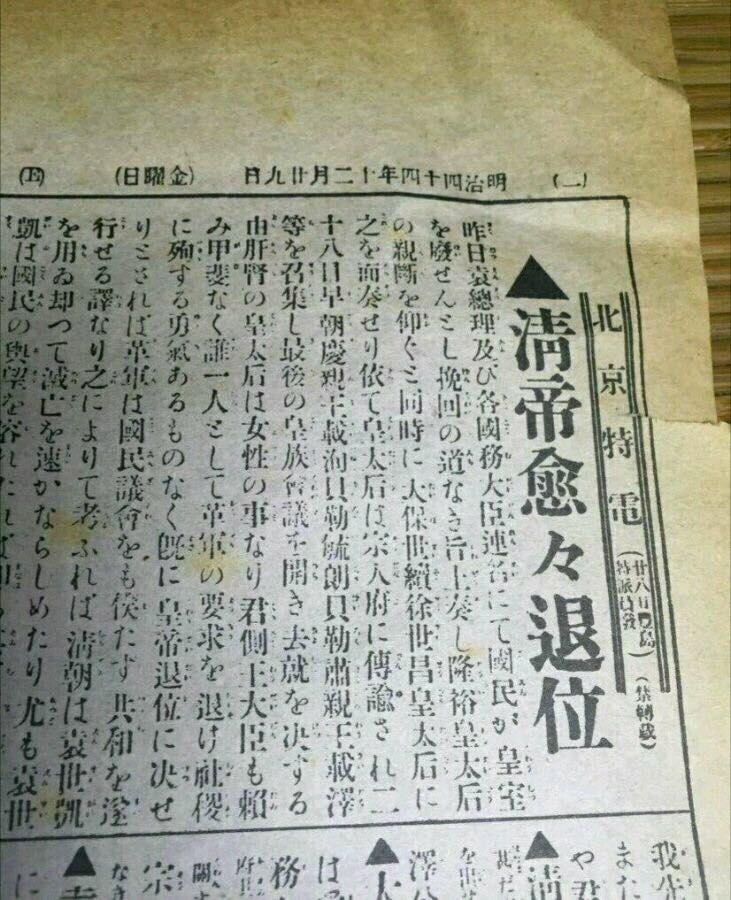 (一) 明治四十四年十二月廿九日 (金曜日)
北京特電
(廿八日豊島
特派員發)
(禁轉載)
▲清帝愈々退位
昨日袁總理及び各國務大臣連名にて國民が皇室
を廢せんとし挽回の道なき旨上奏し隆裕皇太后
の親斷を仰ぐと同時に太保世續徐世昌皇太后に
之を面奏せり依て皇太后は宗人府に傳諭され二
十八日早朝慶親王載洵貝勒毓朗貝勒肅親王載澤
等を召集し最後の皇族會議を開き去就を決する
由肝腎の皇太后は女性の事なり君側王大臣も賴
み甲斐なく誰一人として革軍の要求を退け社稷
に殉する勇氣あるものなく既に皇帝退位に決せ
りとされば革軍は國民議會をも俟たす共和を遂
行せる譯なり之によりて考ふれば清朝は袁世凱
を用ゐ却つて滅亡を速かならしめたり尤も袁世
凱は國民の輿望を容れたれば
我先
また
や君
▲清
を
澤公
▲大
は
務
宗
なき
▲
に